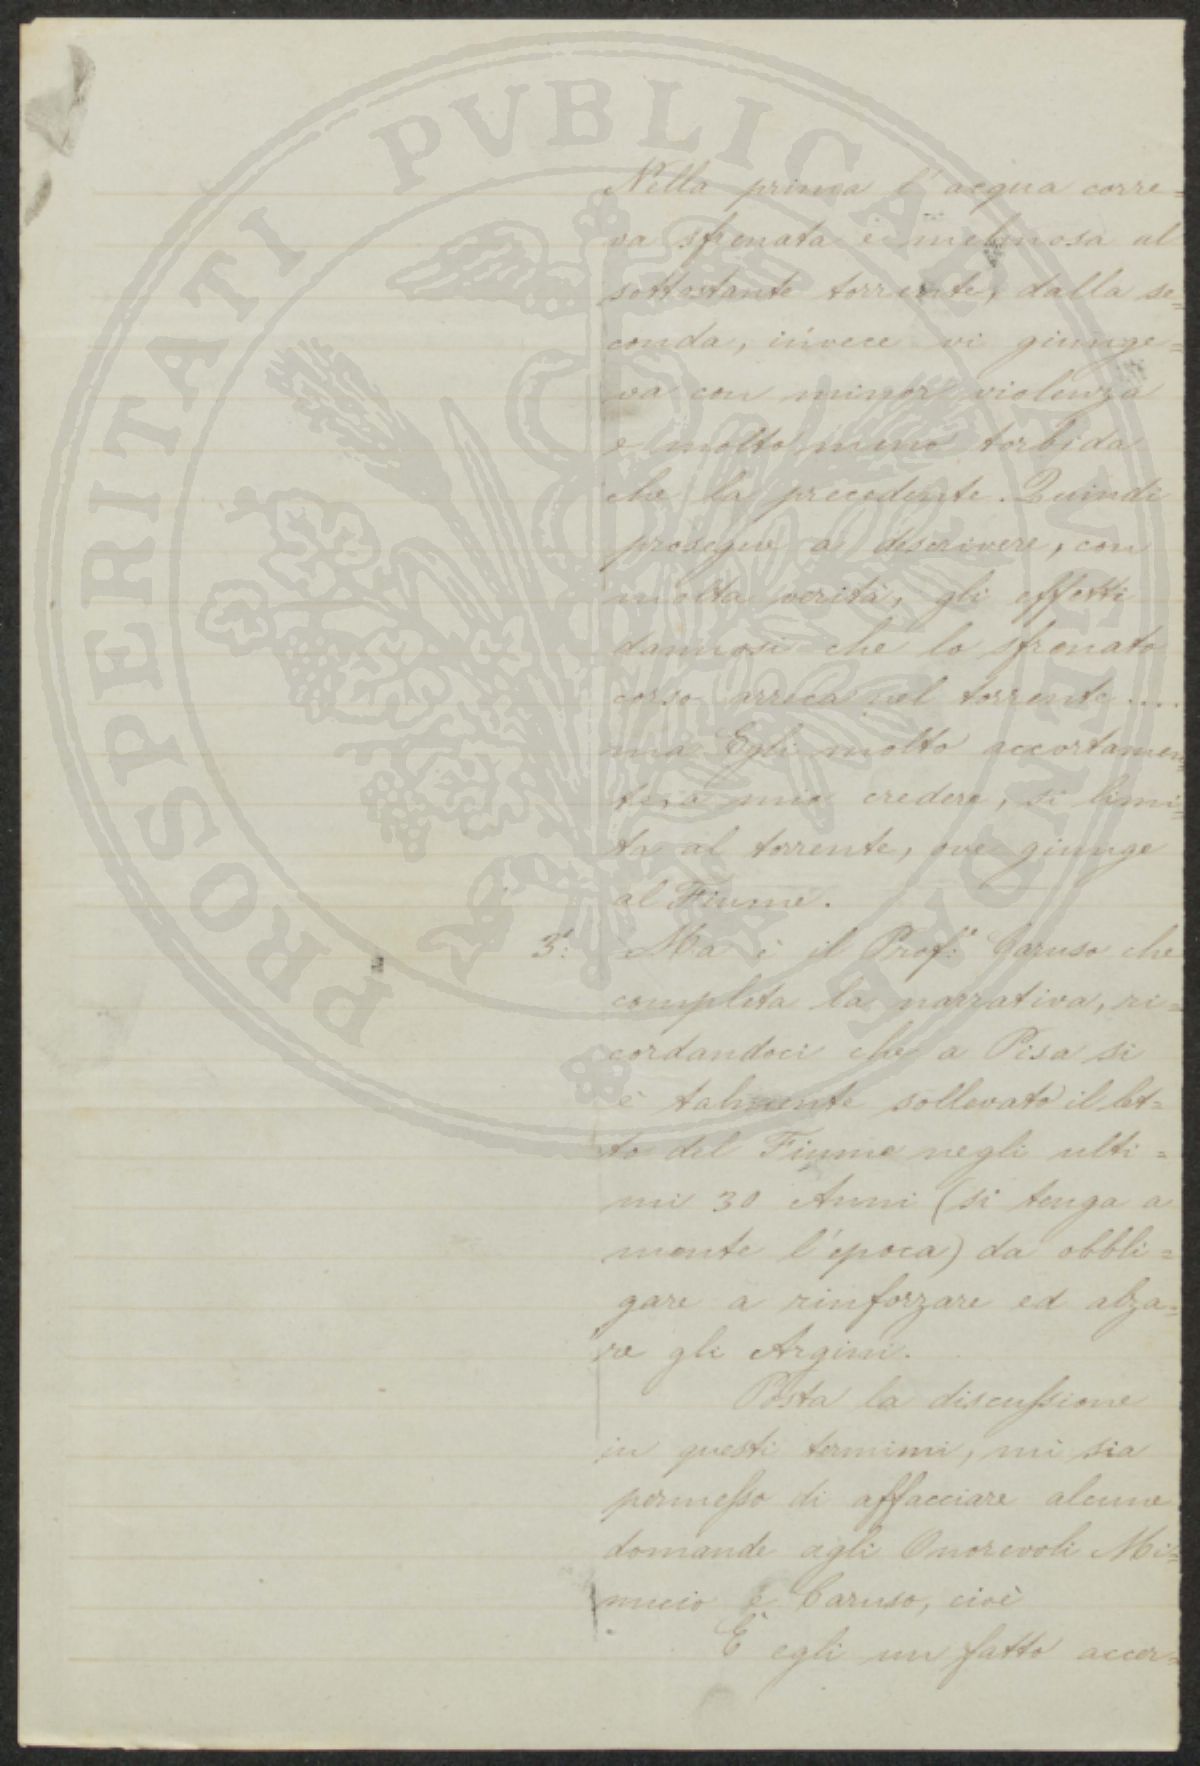 PROSPERITATI PVBLICAE AVGENDAE
Nella prima l'acqua corre=
va sfrenata e melmosa al
sottostante torrente, dalla se=
conda, invece vi giunge=
va con minor violenza
e molto meno torbida
che la precedente. Quindi
prosegue a descrivere, con
molta verità, gli effetti
dannosi che lo sfrenato
corso arreca nel torrente....
ma Egli molto accortamen=
te, a mio credere, si limi=
ta al torrente, ove giunge
al Fiume.
3: Ma è il Prof: Caruso che
completa la narrativa, ri=
cordandoci che a Pisa si
è talmente sollevato il let=
to del Fiume negli ulti=
mi 30 Anni (si tenga a
mente l'epoca) da obbli=
gare a rinforzare ed alza=
re gli Argini.
Posta la discussione
in questi termini, mi sia
permesso di affacciare alcune
domande agli Onorevoli Mi=
nucci e Caruso, cioè
È egli un fatto accer=